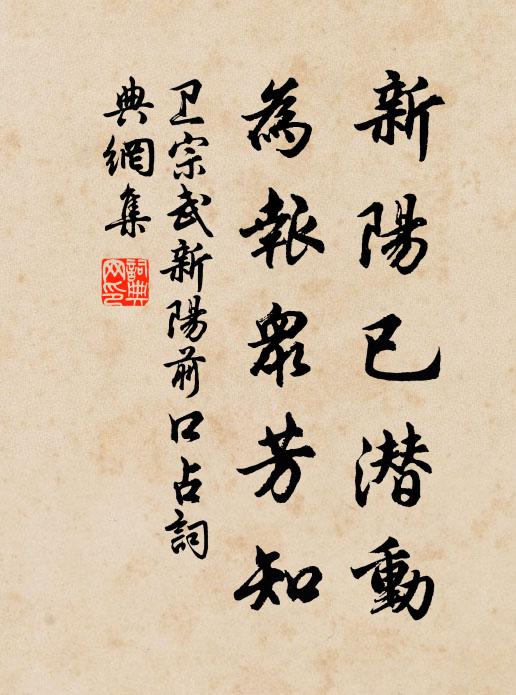 新陽已潜動
為報衆芳知
卫宗武新陽前口占詞
典網集
詞典網印